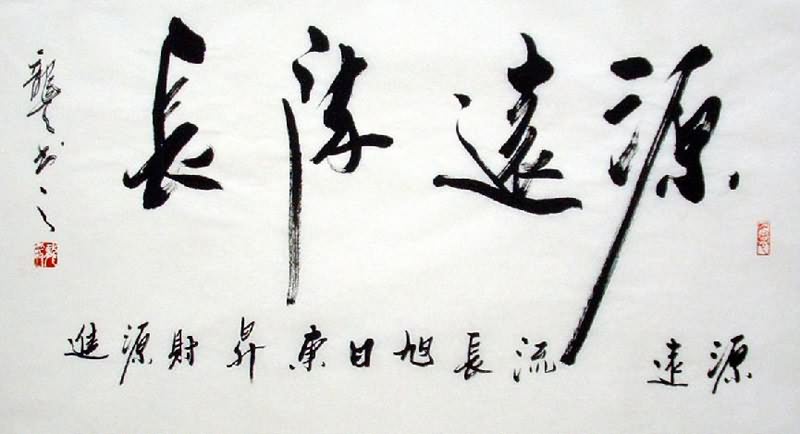 源遠流長
源遠流長旭日東昇財源進
書